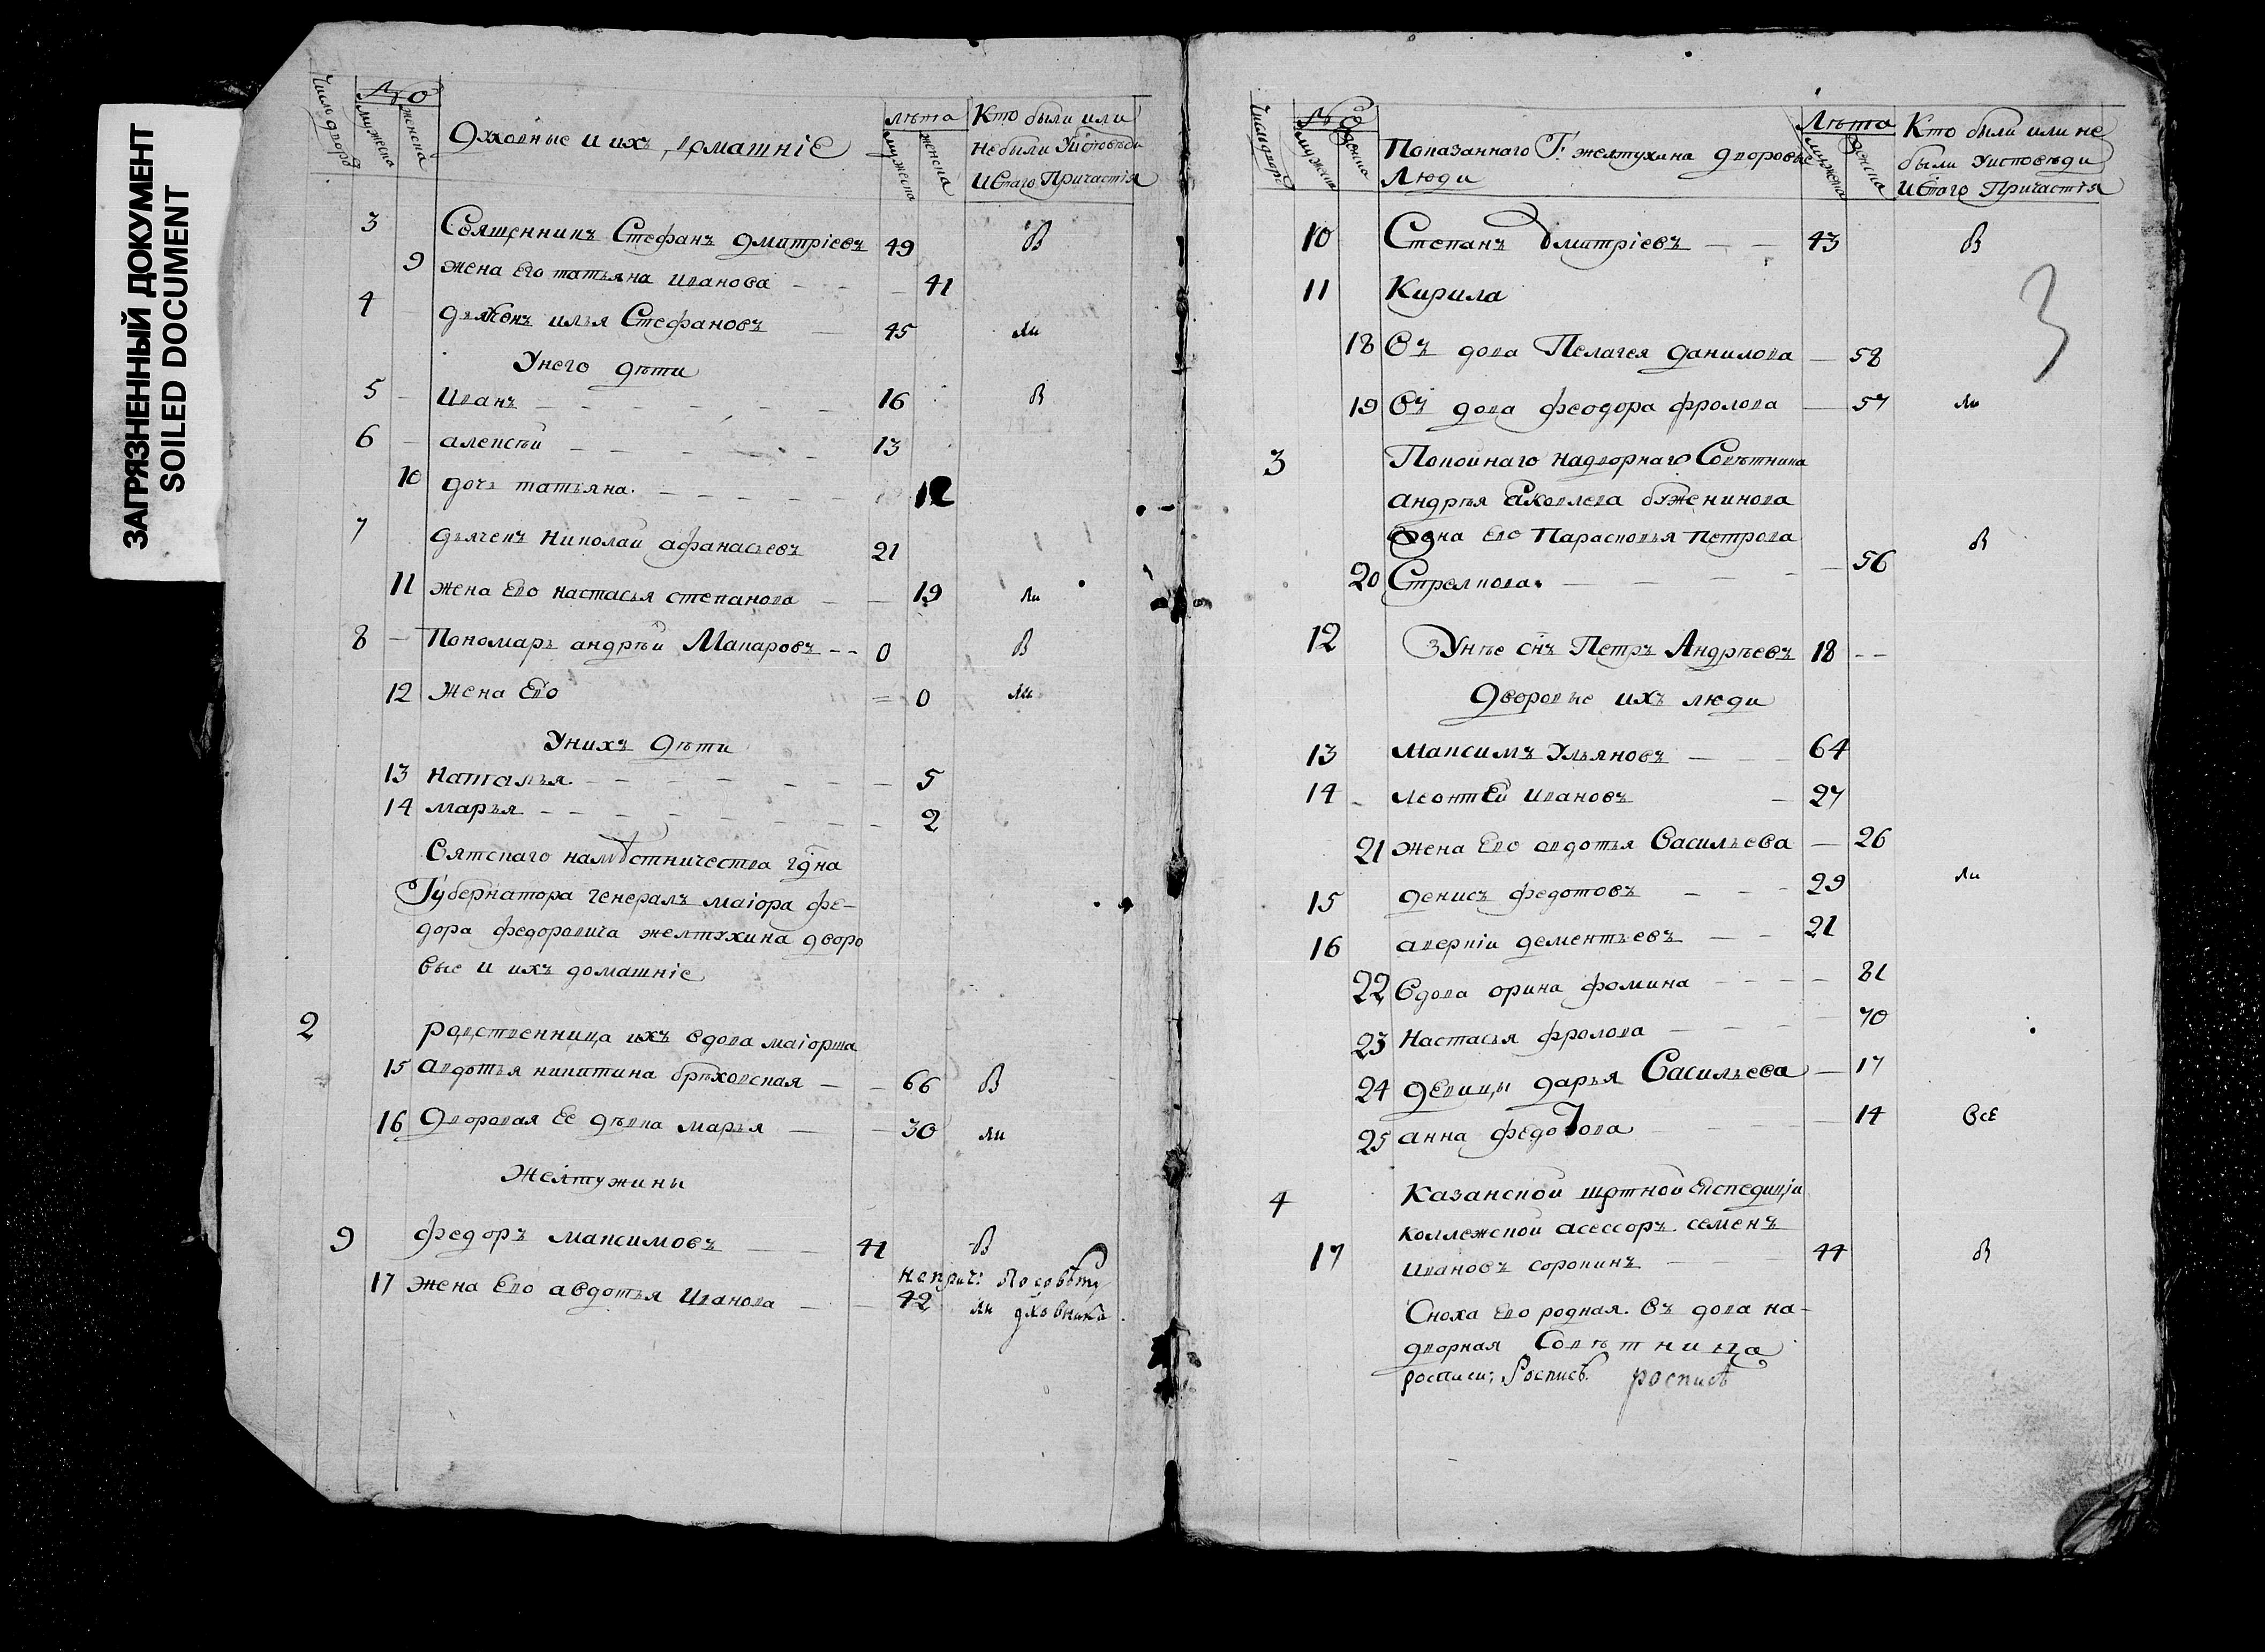 ЗАГРЯЗНЕННЫЙ ДОКУМЕНТ
SOILED DOCUMENT
Число дворъ
№
мужеска
женска
Духовные и ихъ домашніе
лѣта
мужеска
женска
Кто были или
небыли Уисповѣди
иСтаго Причастія
3 Священникъ Стефанъ дмитріевъ 49 В
9 жена его татьяна иванова 41
4 дьяконъ илья Стефановъ 45 ли
Унего дѣти
5 Иванъ 16 В
6 алексѣй 13
10 дочь татьяна 12
7 дьячекъ николай афанасьевъ 21
11 жена Его настасья степанова 19 ли
8 Пономарь андрѣй Макаровъ 0 В
12 жена Его 0 ли
Унихъ дѣти
13 наталья 5
14 марья 2
Вятскаго намѣстничества гдна
Губернатора генералъ маіора фе-
дора федоровича желтухина дворо
вые и ихъ домашніе
2 родственница ихъ вдова маіорша
15 авдотья никитина бряховская 66 В
16 Дворовая Ее дѣвка марья 30 ли
Желтухины
9 федоръ максимовъ 41 В
неприч: По совѣту
17 жена Его авдотья Иванова 42 ли дховника
Число дворъ
№
мужеска
женска
Показаннаго Г: желтухина дворовые
Люди
Лѣта
мужеска
женска
Кто были или не
были Уисповѣди
иСтаго Причастія
3
10 Степанъ Дмитріевъ 43 В
11 Кирила
18 Въ дова Пелагея данилова 58
19 Въ дова феодора фролова 57 ли
3 Покойнаго надворнаго Совѣтника
андрея Яковлева буженинова
Жена Его Парасковья Петрова
20 Стрелкова 56 В
12 Унѣе снъ Петръ Андрѣевъ 18
Дворовые ихъ люди
13 максимъ Ульяновъ 64
14 леонтЕй ивановъ 27
21 жена Его авдотья Васильева 26
15 денисъ федотовъ 29 ли
16 аверкій дементьевъ 21
22 Вдова орина фомина 81
23 Настасья фролова 70
24 дЕвицы дарья Васильева 17
25 анна федотова 14 всЕ
4 Казанской щотной Експедиціи
коллежской асессоръ семенъ
17 ивановъ сорокинъ 44 В
Сноха Его родная. Въ дова на-
дворная Совѣтница
росписи: Роспись роспись